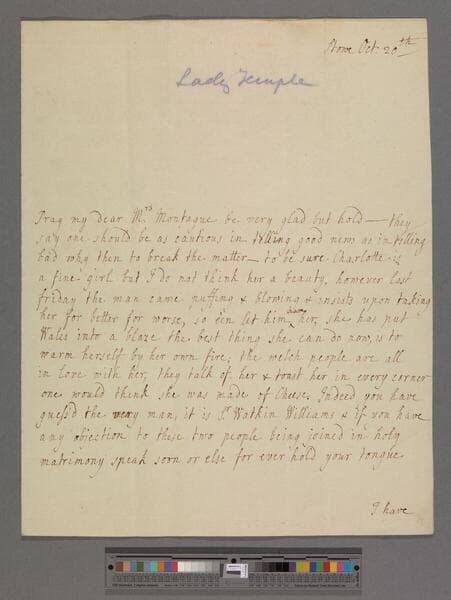 Stowe Oct. 20th
Lady Temple
Pray my dear Mrs Montague be very glad but hold — they
say one should be as cautious in telling good news as in telling
bad why then to break the matter — to be sure Charlotte is
a fine girl but I do not think her a beauty, however last
friday the man came puffing & blowing & insists upon taking
her for better for worse, so e'en let him have her, she has put
Wales into a blaze the best thing she can do now, is to
warm herself by her own fire; the welch people are all
in love with her, they talk of her & toast her in every corner
one would think she was made of Cheese. Indeed you have
guess'd the very man, it is Sr Watkin Williams & if you have
any objection to these two people being joined in holy
matrimony speak soon or else for ever hold your tongue
I have